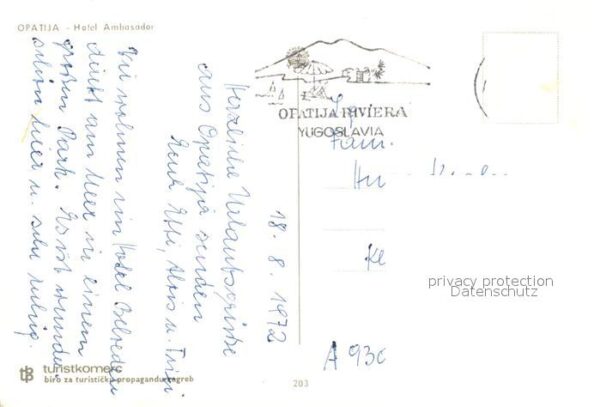 OPATIJA - Hotel Ambasador
18. 8. 1972
Herzliche Urlaubsgrüße
aus Opatija senden
Wir wohnen im Hotel Belvedere
direkt am Meer in einem
großen Park. Es ist wunder
schön hier u. sehr ruhig.
OPATIJA RIVIERA
YUGOSLAVIA
Fam.
privacy protection
Datenschutz
A 930
tb turistkomerc
biro za turističku propagandu zagreb
203